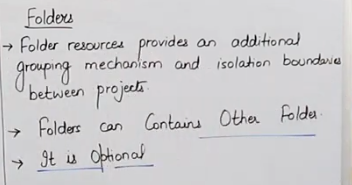 Folders
→ Folder resources provides an additional
grouping mechanism and isolation boundaries
between projects.
→ Folders can Contains Other Folder.
→ It is Optional